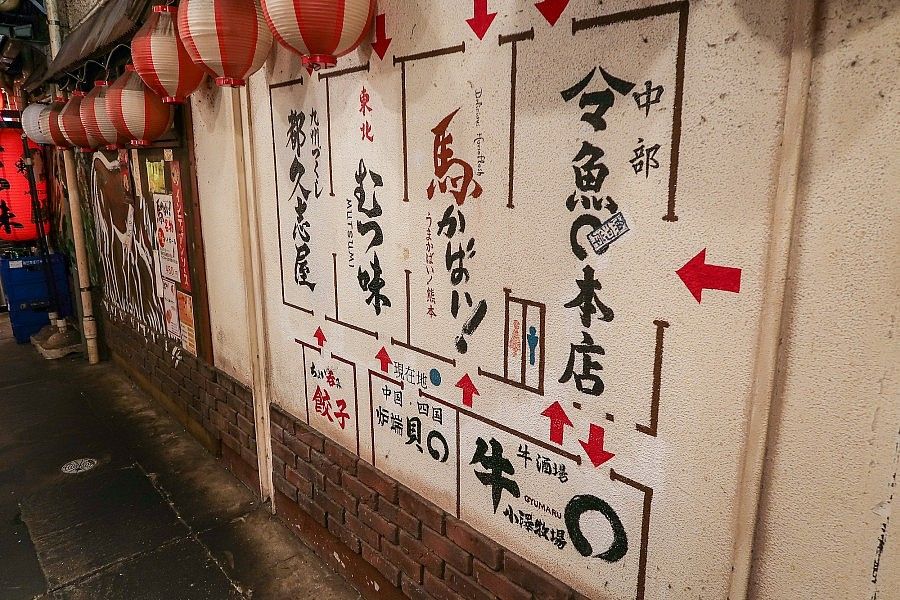 九州つくし
都久志屋
東北
むつ味
MUTSUMI
馬かばい!
うまかばい！熊本
中部
魚〇本店
現在地
ちょい呑み
餃子
中国・四国
炉端貝〇
牛酒場
牛〇
GYUMARU
小澤牧場
味